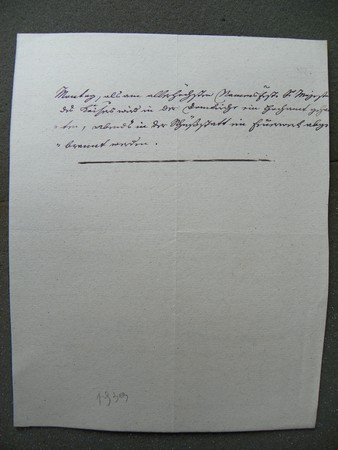 Montag, als am allerhöchsten Namensfeste Sr Majestät
des Kaisers wird in der Domkirche ein Hochamt gehal-
ten, abends in der Schießstatt ein Feuerwerk abge-
brannt werden.